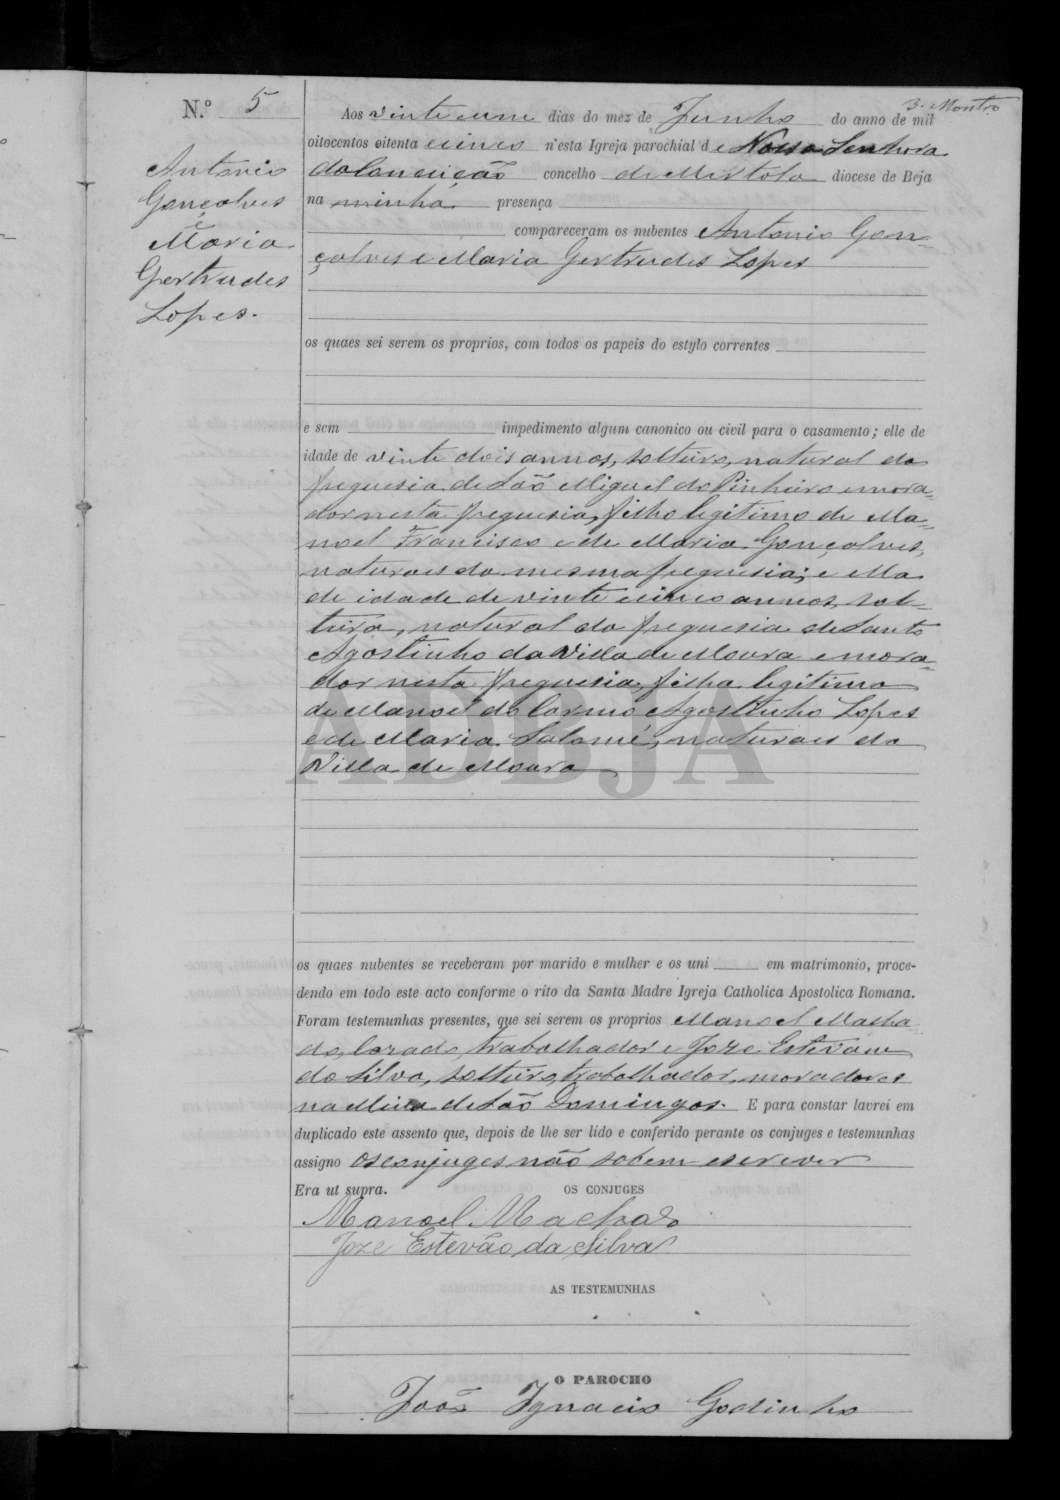 3. Montro
N.º 5
Antonio
Gonçalves
e
Maria
Gertrudes
Lopes.
Aos vinte e um dias do mez de Junho do anno de mil
oitocentos oitenta e cinco n'esta Igreja parochial de Nossa Senhora
da Conceição concelho de Mertola diocese de Beja
na minha presença
compareceram os nubentes Antonio Gon-
çalves e Maria Gertrudes Lopes
os quaes sei serem os proprios, com todos os papeis do estylo correntes
e sem impedimento algum canonico ou civil para o casamento; elle de
idade de vinte dois annos, solteiro, natural da
freguesia de São Miguel do Pinheiro e mora-
dor nesta freguesia, filho legitimo de Ma-
noel Francisco e de Maria Gonçalves,
naturaes da mesma freguesia; e ella
de idade de vinte e cinco annos, sol-
teira, natural da freguesia de Santo
Agostinho da Villa de Moura e mora-
dor nesta freguesia, filha legitima
de Manoel do Carmo Agostinho Lopes
e de Maria Salomé, naturaes da
Villa de Moura
ADBJA
os quaes nubentes se receberam por marido e mulher e os uni em matrimonio, proce-
dendo em todo este acto conforme o rito da Santa Madre Igreja Catholica Apostolica Romana.
Foram testemunhas presentes, que sei serem os proprios Manoel Macha
do, cazado, trabalhador e Joze Estevam
da Silva, solteiro, trabalhador, moradores
na Mina de São Domingos. E para constar lavrei em
duplicado este assento que, depois de lhe ser lido e conferido perante os conjuges e testemunhas
assigno Os conjuges não sabem escrever
Era ut supra.
OS CONJUGES
Manoel Machado
Joze Estevão da Silva
AS TESTEMUNHAS
O PAROCHO
João Ignacio Godinho